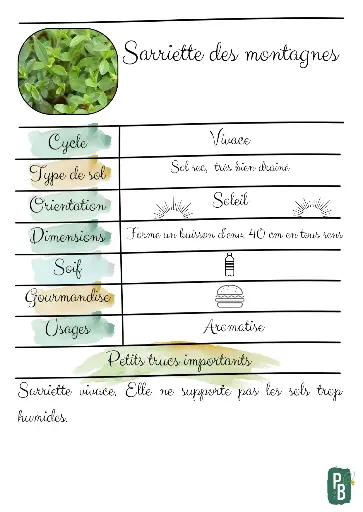 Sarriette des montagnes
Cycle Vivace
Type de sol Sol sec, très bien drainé
Orientation Soleil
Dimensions Forme un buisson d'env. 40 cm en tous sens
Soif
Gourmandise
Usages Aromatise
Petits trucs importants
Sarriette vivace. Elle ne supporte pas les sols trop
humides.
PB